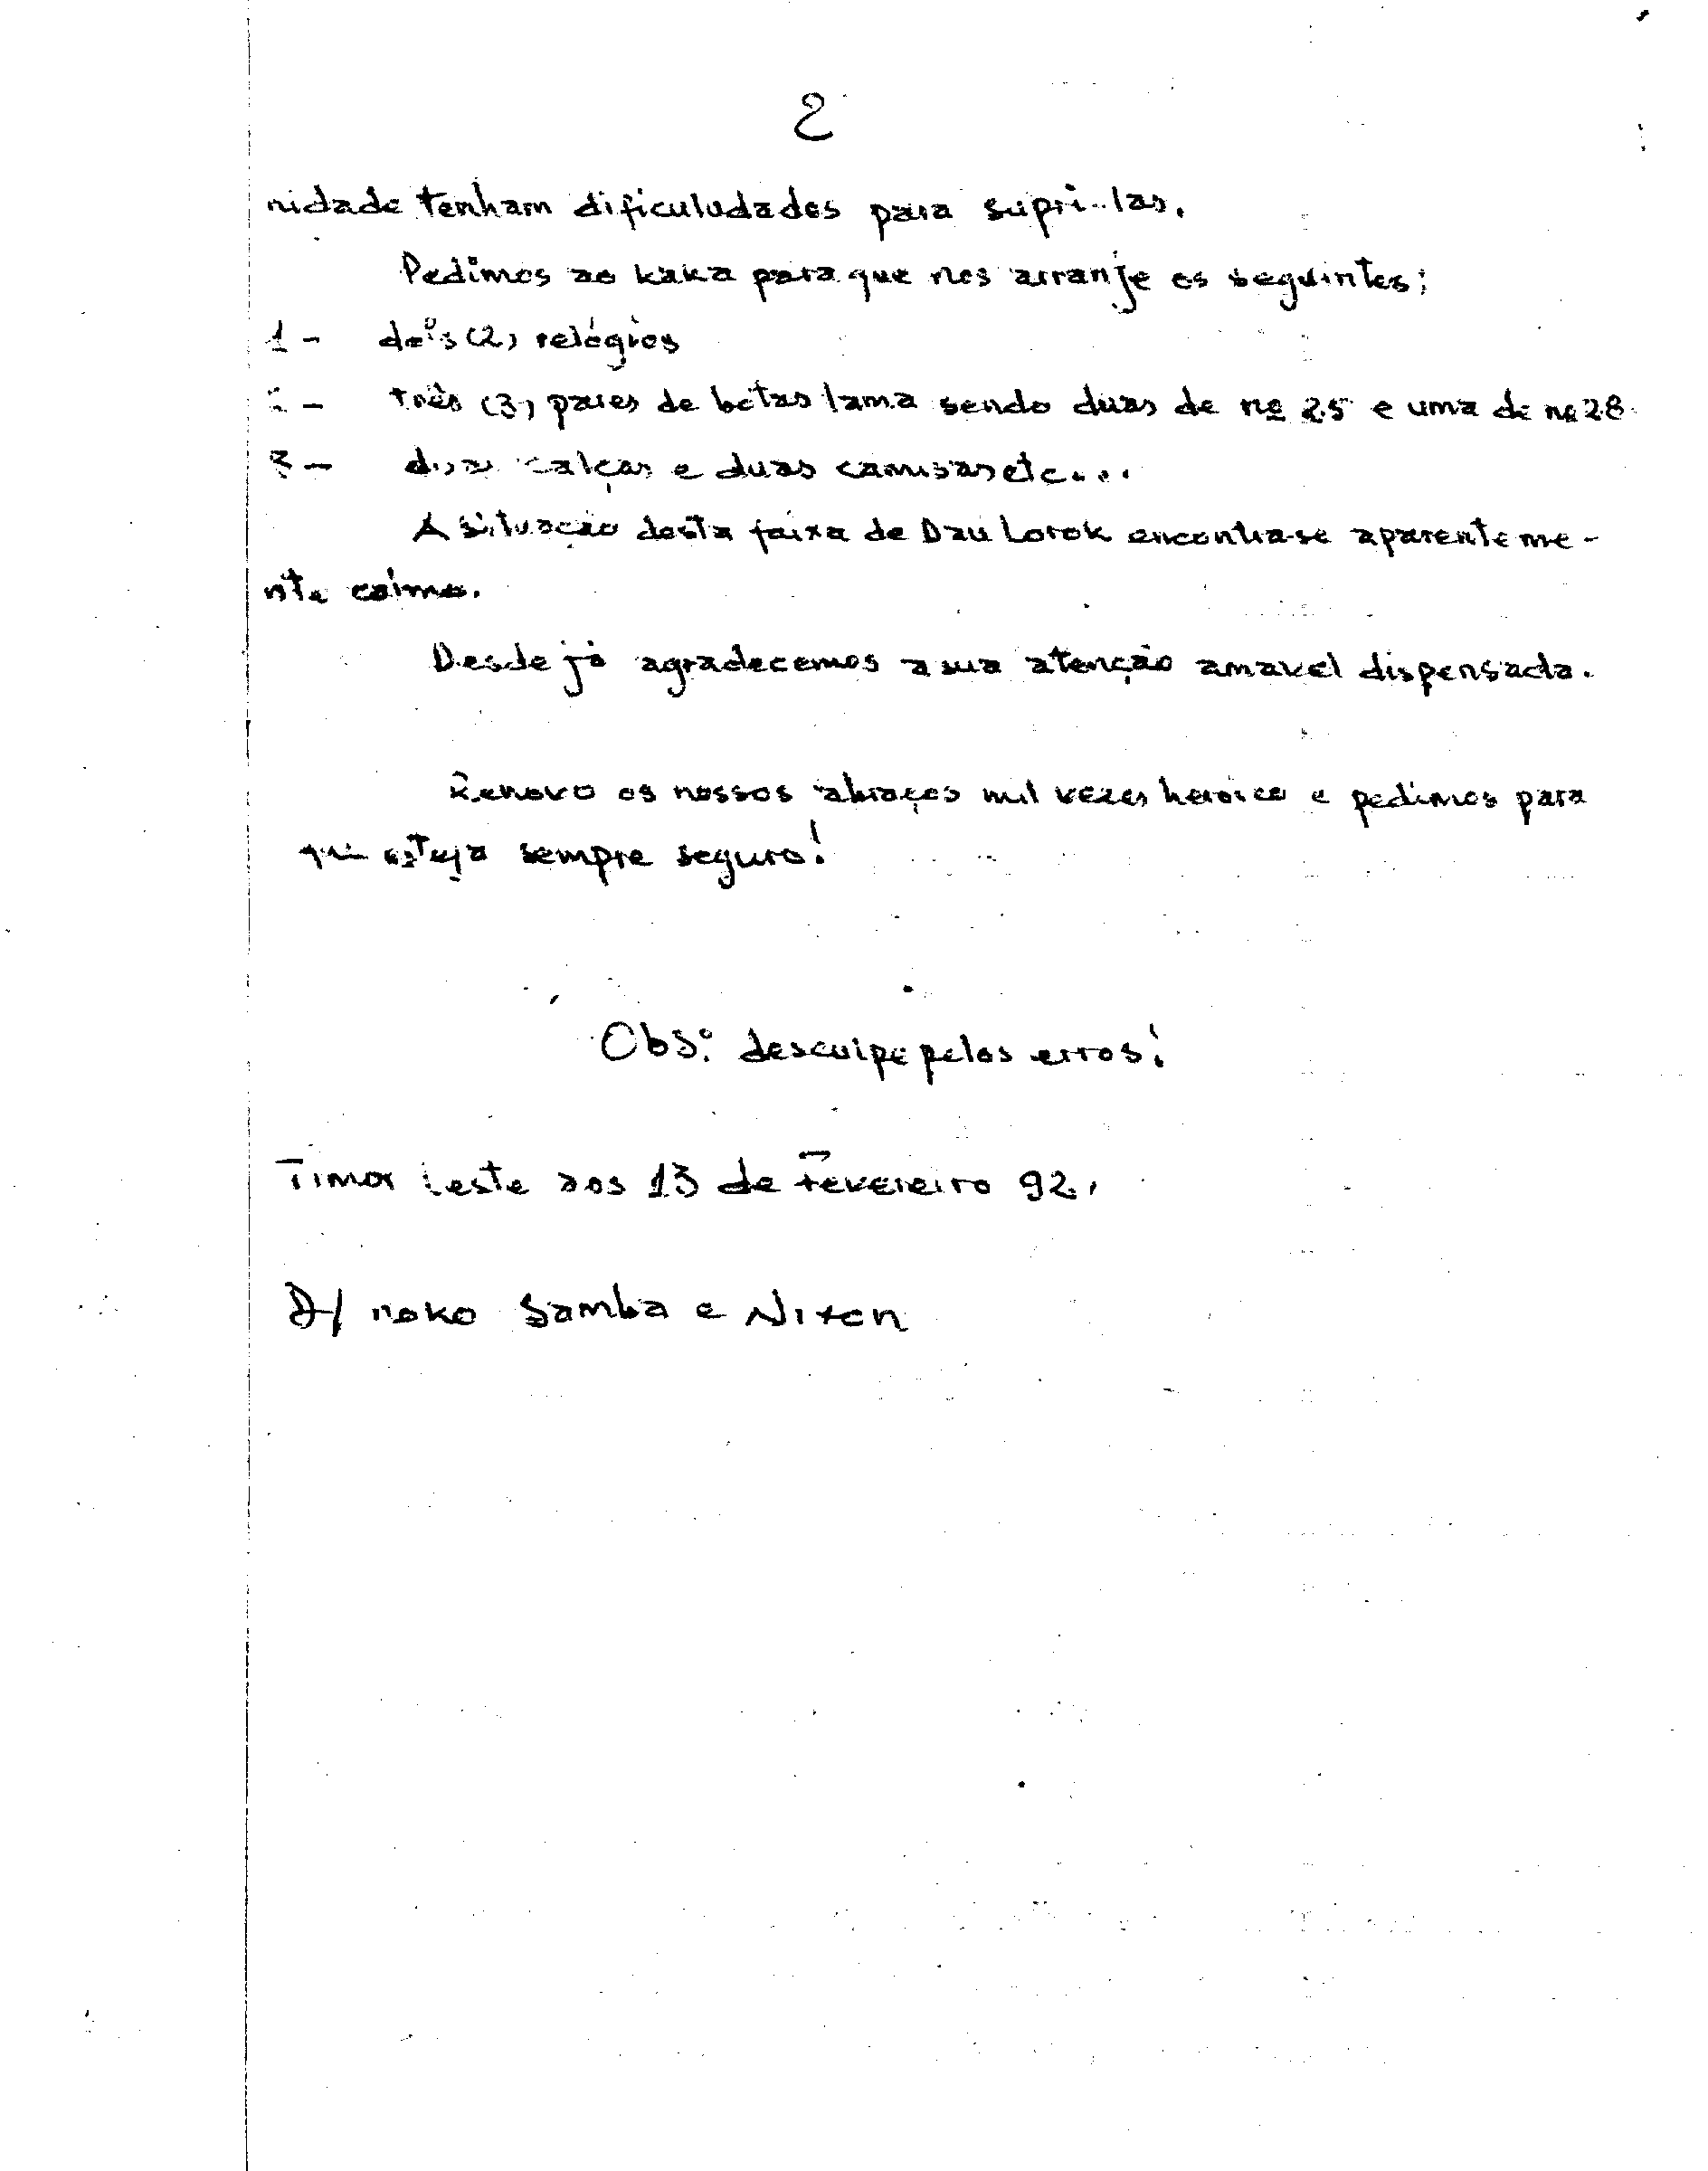 2
nidade tenham dificuludades para supri-las.
Pedimos ao kaka para que nos arranje os seguintes:
1 - dois (2) relógios
2 - três (3) pares de botas lama sendo duas de nº 25 e uma de nº 28.
3 - duas calças e duas camisas etc...
A situação desta faixa de Dau Lorok encontra-se aparenteme-
nte calma.
Desde já agradecemos a sua atenção amavel dispensada.
Renovo os nossos abraços mil vezes heroico e pedimos para
que esteja sempre seguro!
Obs: desculpe pelos erros!
Timor Leste aos 13 de Fevereiro 92.
D/ noko Samba e